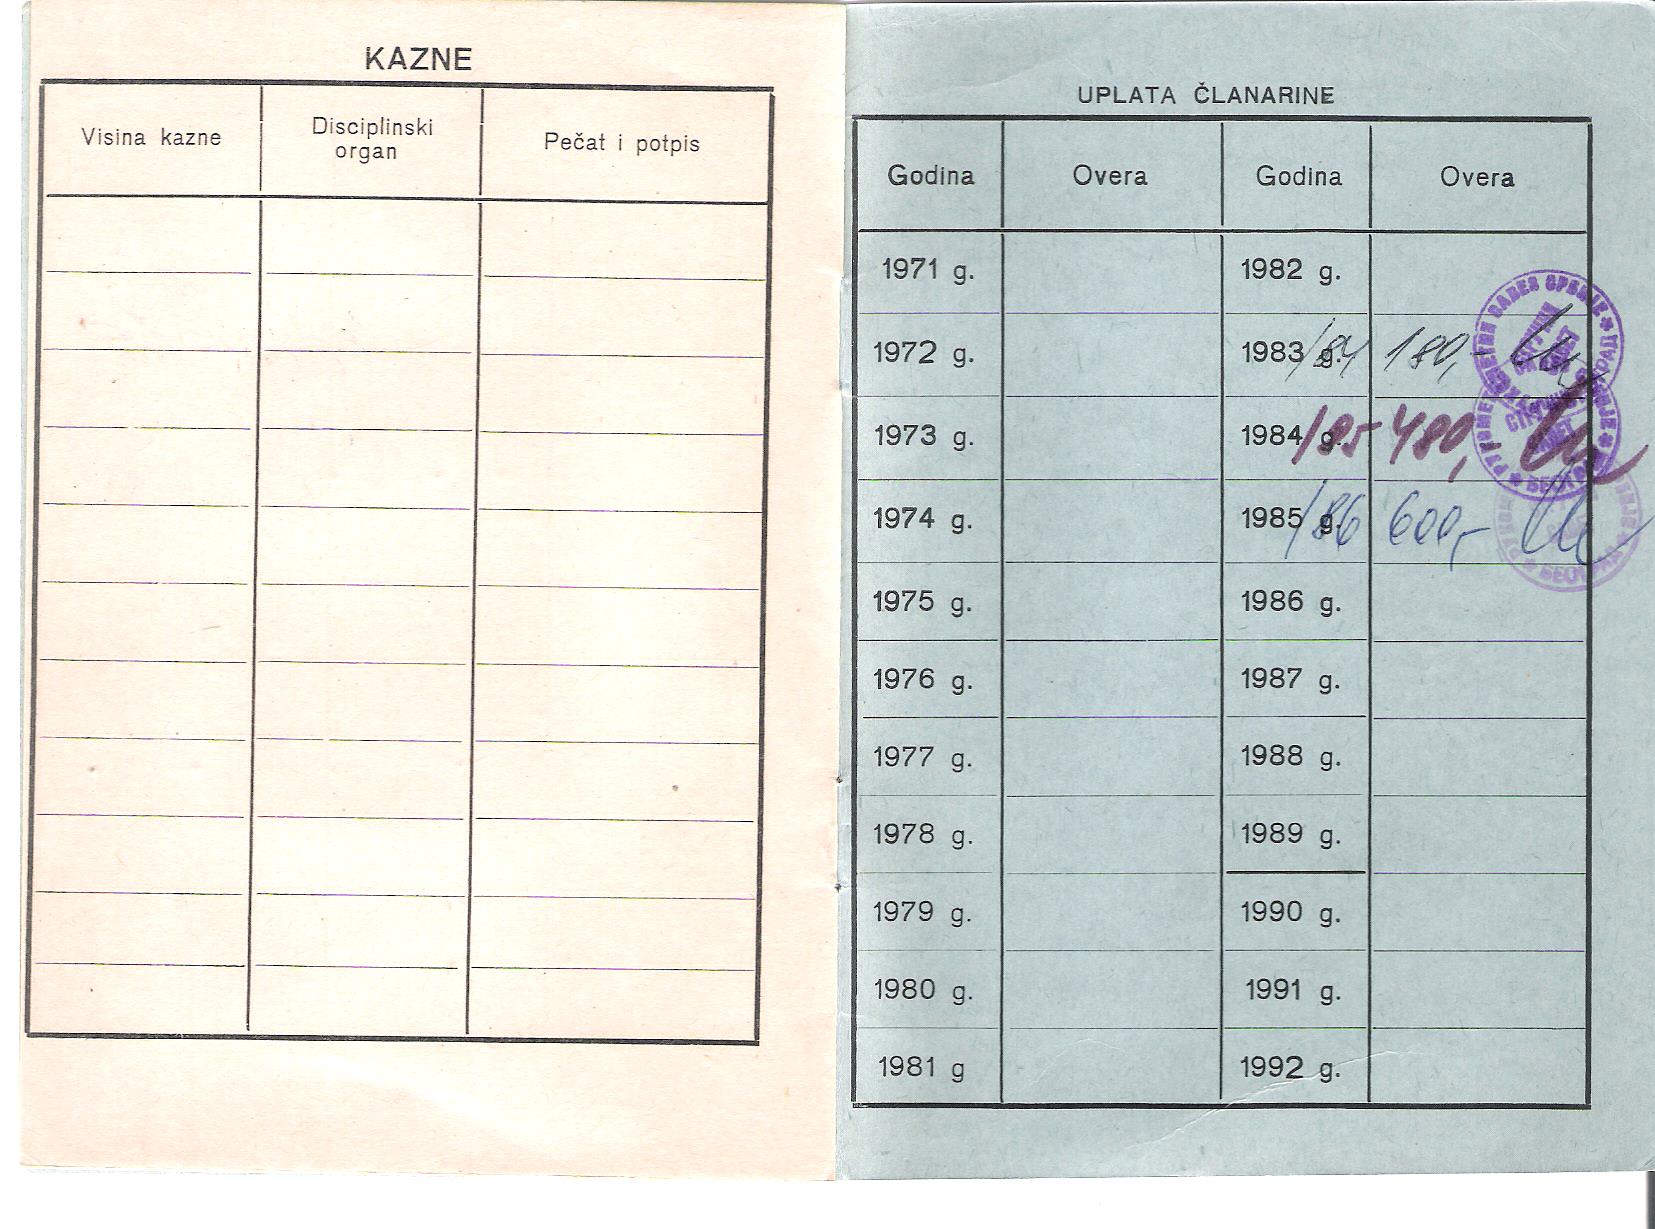 KAZNE
Visina kazne
Disciplinski
organ
Pečat i potpis
UPLATA ČLANARINE
Godina Overa Godina Overa
1971 g. 1982 g.
1972 g. 1983/84 g. 180,-
1973 g. 1984/85 g. 480,-
1974 g. 1985/86 g. 600,-
1975 g. 1986 g.
1976 g. 1987 g.
1977 g. 1988 g.
1978 g. 1989 g.
1979 g. 1990 g.
1980 g. 1991 g.
1981 g 1992 g.